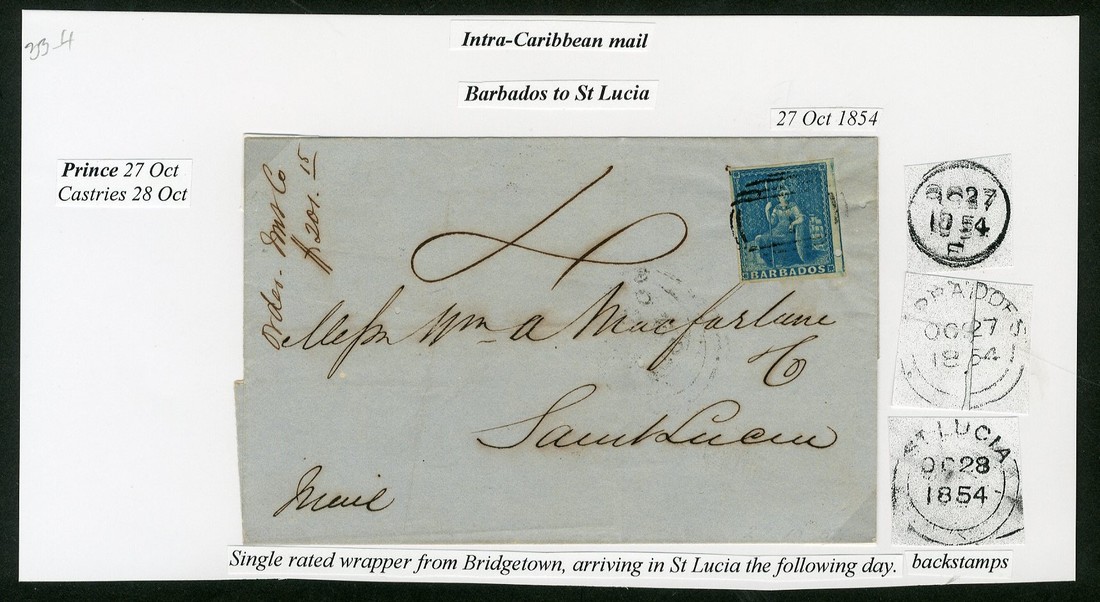 Intra-Caribbean mail
Barbados to St Lucia
27 Oct 1854
Prince 27 Oct
Castries 28 Oct
Order. Invt Co
$201. 15
4
BARBADOS
Messrs Wm A Macfarlane
Co
Saint Lucia
Mail
OC27
1854
BARBADOES
OC27
1854
ST LUCIA
OC28
1854
Single rated wrapper from Bridgetown, arriving in St Lucia the following day.
backstamps